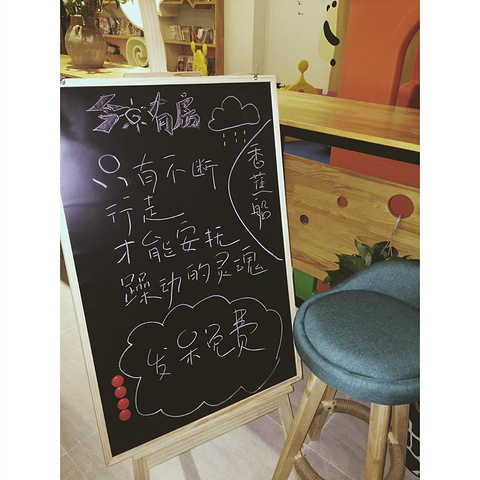 有房
只有不断
行走
才能安抚
躁动的灵魂
香蕉船
发呆免费